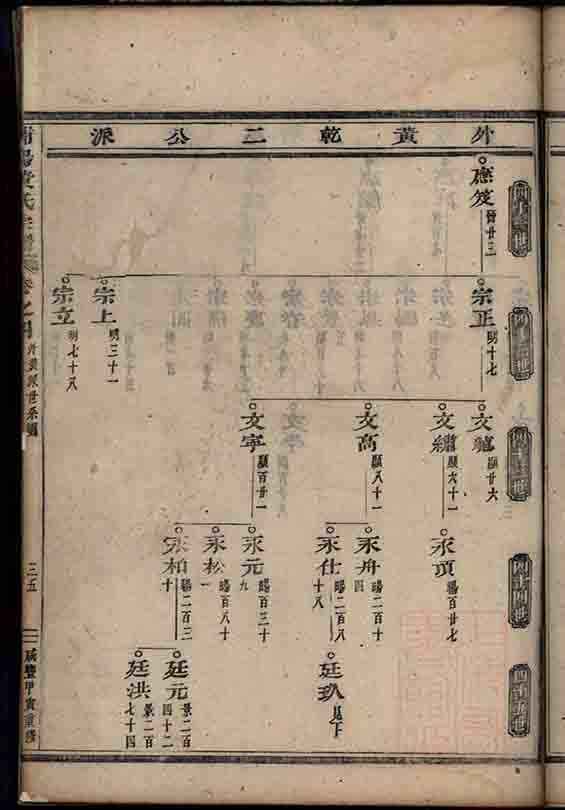 外黃乾二公派
應笈 晉廿三
宗正 明十七
宗上 明三十一
宗立 明七十八
文繡 顯六十一
文高 顯八十一
文寧 顯百廿一
永頂 暘百廿七
永舟 暘二百十四
永仕 暘二百八十八
永元 暘百三十九
永松 暘百八十一
永柏 暘二百三十
廷玖 見下
廷元 景二百四十二
廷洪 景二百七十四
卷之四
外黃派世系圖
三五
咸豐甲寅重修